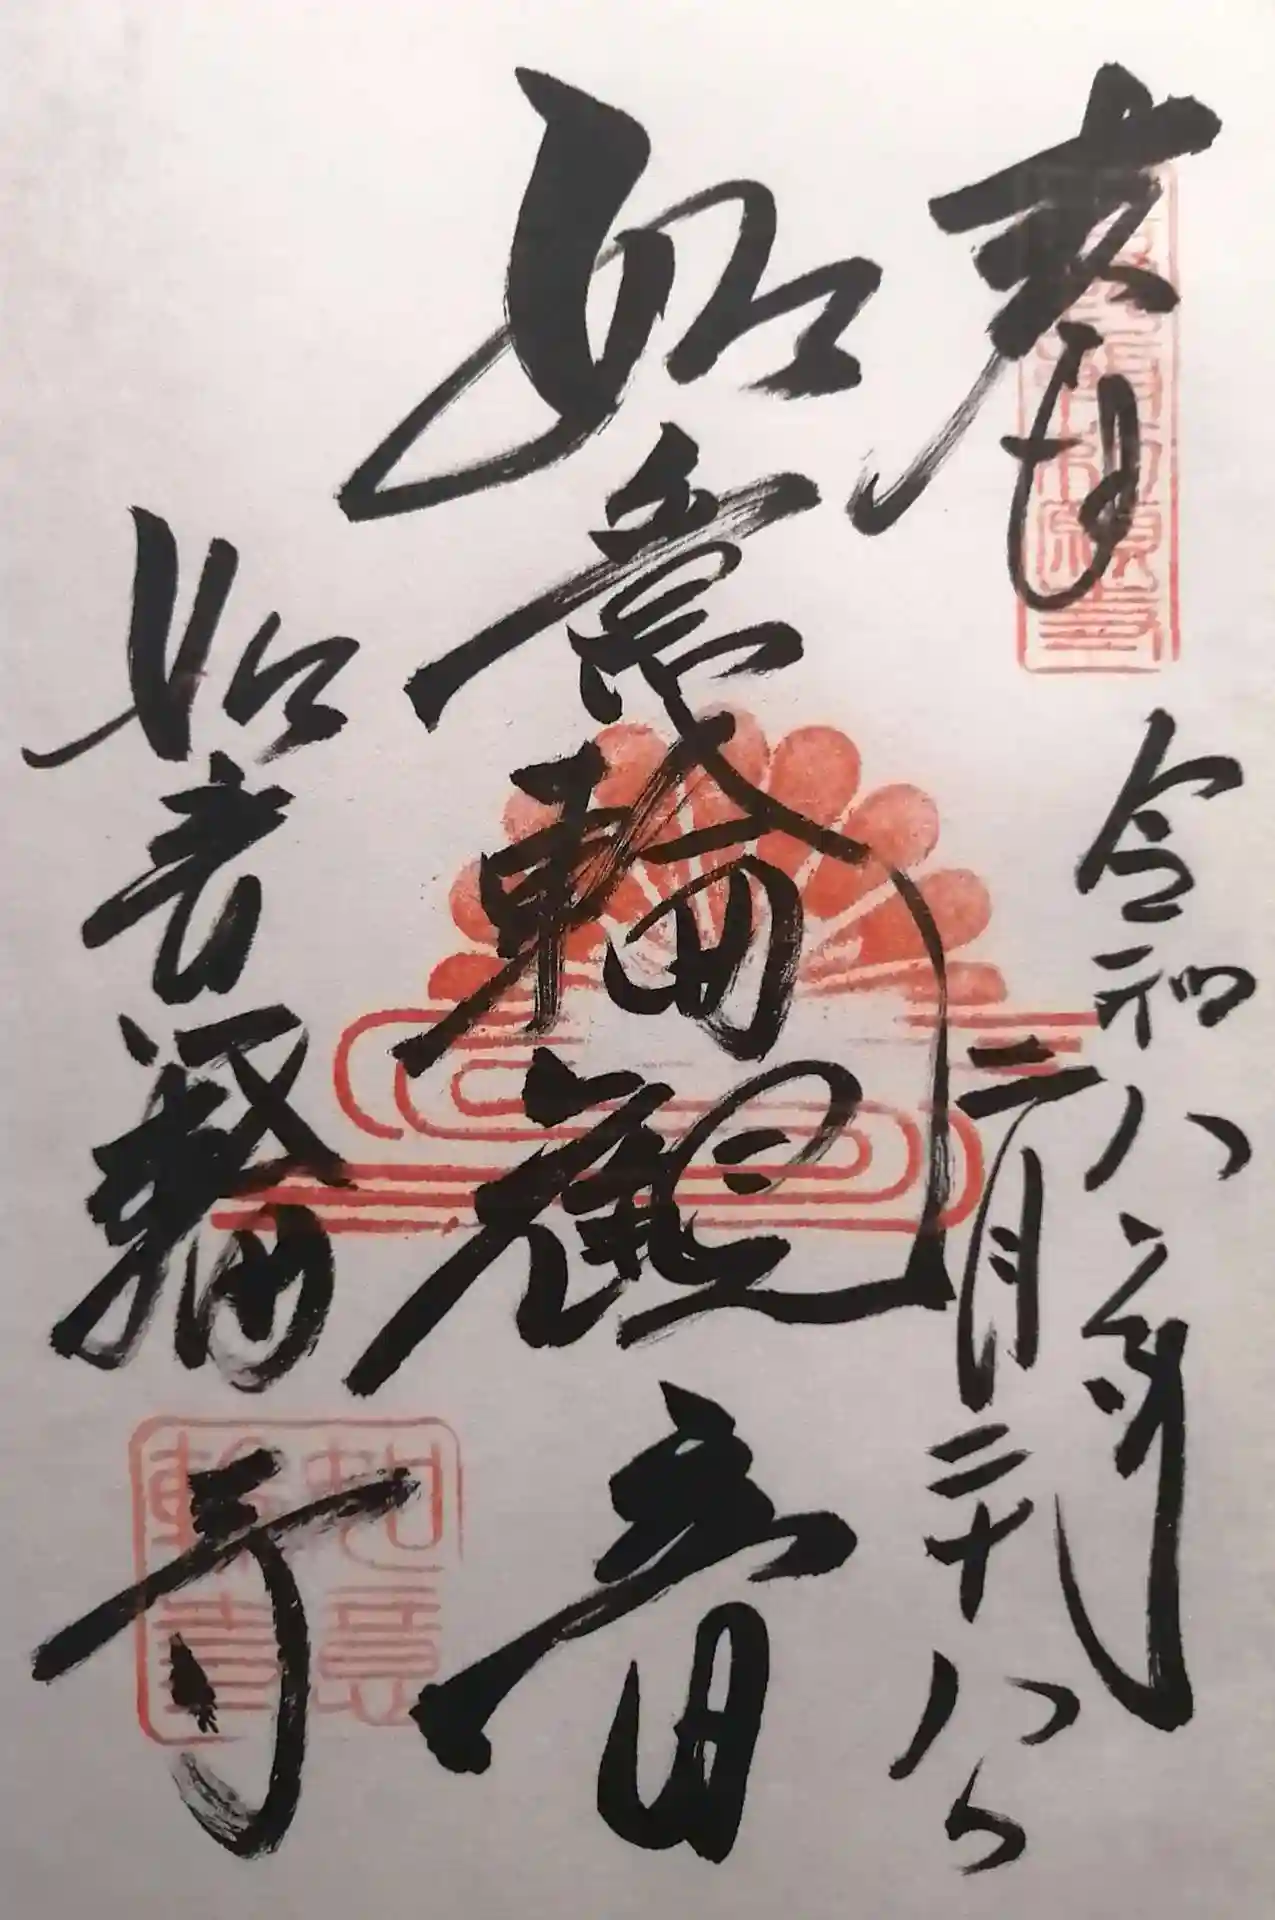 奉拝
令和八年
二月二十八日
如意輪観音
如意輪寺
如意
輪寺